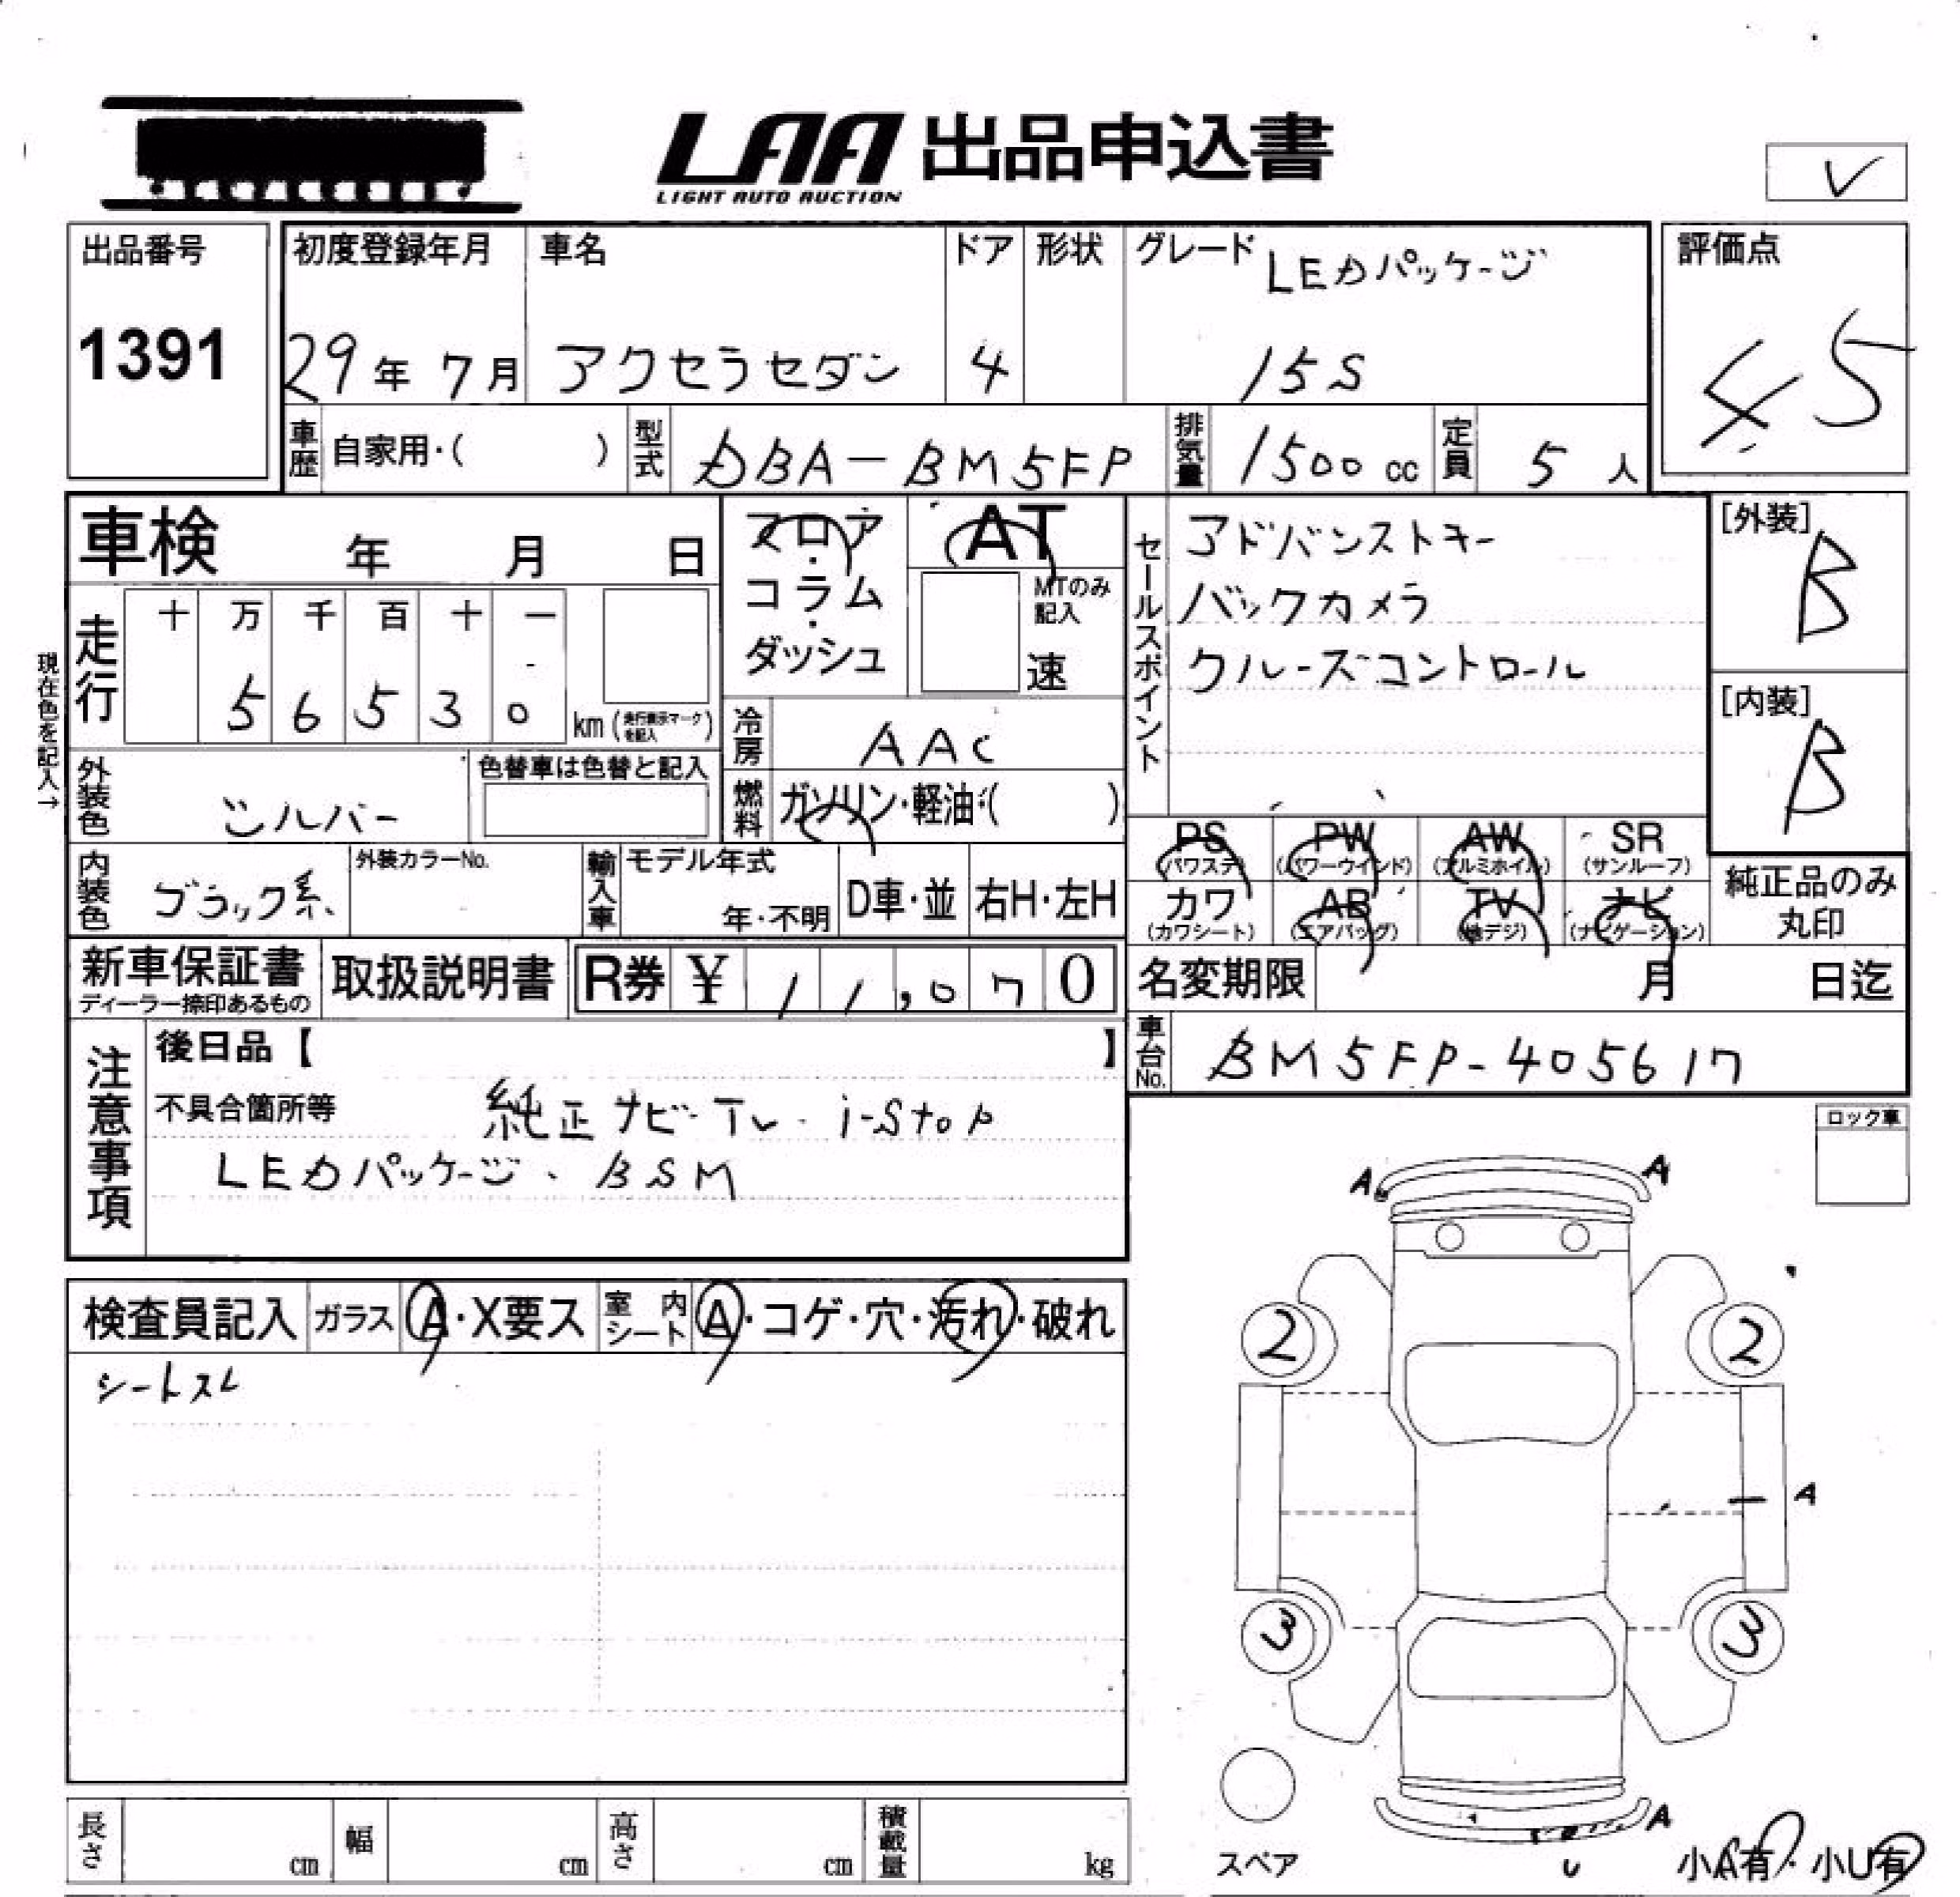 LAA 出品申込書
LIGHT AUTO AUCTION
V
出品番号
1391
初度登録年月
29年 7月
車名
アクセラセダン
ドア
4
形状
グレード
LEDパッケージ
15S
評価点
4.5
車歴
自家用・(　　　)
型式
DBA-BM5FP
排気量
1500 cc
定員
5 人
車検　年　月　日
フロア・コラム・ダッシュ
AT
MTのみ記入
速
セールスポイント
アドバンストキー
バックカメラ
クルーズコントロール
[外装]
B
[内装]
B
現在色を記入→
走行
十 万 千 百 十 一
5 6 5 3 0
km (走行表示マークを記入)
冷房
AAC
外装色
シルバー
色替車は色替と記入
燃料
ガソリン・軽油・(　　　)
PS (パワステ)
PW (パワーウインド)
AW (アルミホイル)
SR (サンルーフ)
カワ (カワシート)
AB (エアバッグ)
TV (地デジ)
ナビ (ナビゲーション)
純正品のみ丸印
内装色
ブラック系
外装カラーNo.
輸入車
モデル年式
年・不明
D車・並
右H・左H
新車保証書
ディーラー捺印あるもの
取扱説明書
R券 ¥ 11,070
名変期限　月　日迄
車台No.
BM5FP-405617
注意事項
後日品【　　　】
不具合箇所等
純正ナビ・TV・i-stop
LEDパッケージ、BSM
ロック車
検査員記入
ガラス
A・X要ス
室内シート
A・コゲ・穴・汚れ・破れ
シートスレ
A A
2 2
A
3 3
A
U
スペア
小A有・小U有
長さ cm
幅 cm
高さ cm
積載量 kg